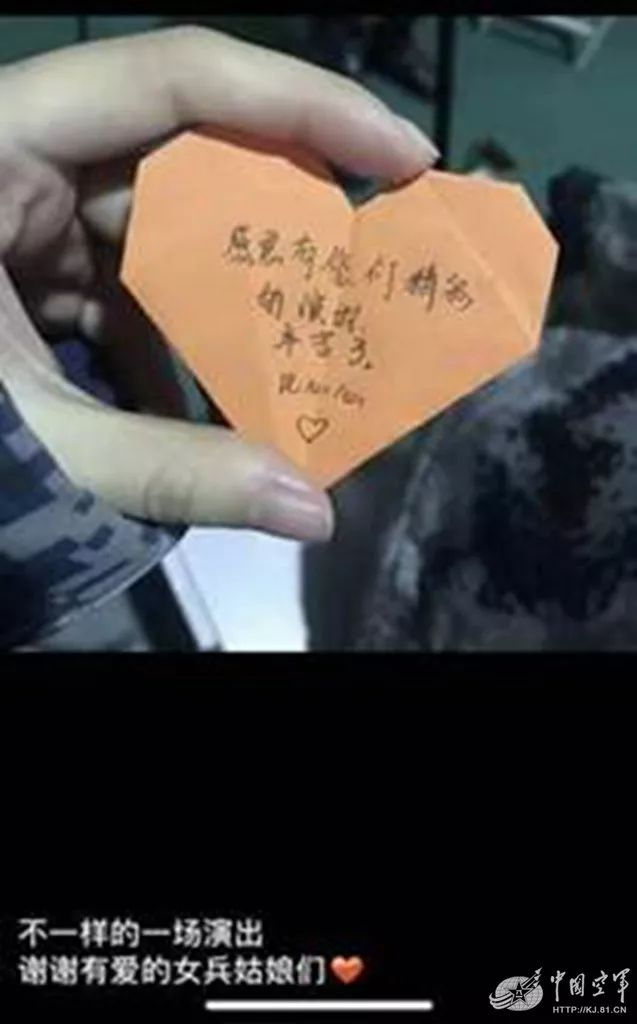 感恩有你们精彩
的演出,
辛苦了。
不一样的一场演出
谢谢有爱的女兵姑娘们
中国空軍
HTTP://KJ.81.CN